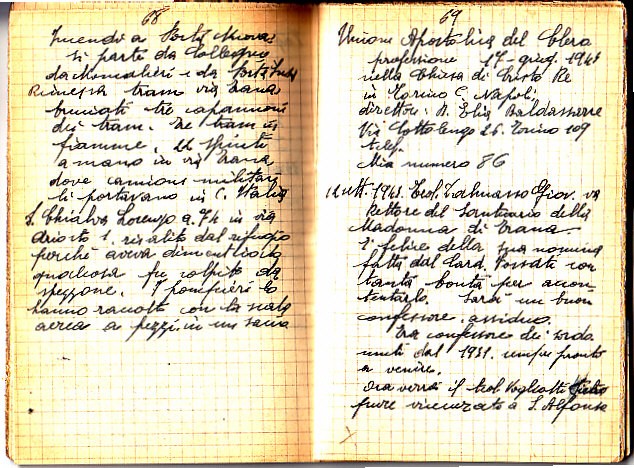 68
Incendi a Porta Nuova
si parte da Collegno
da Moncalieri e da Porta Susa
Rimessa tram via Trana
bruciati tre capannoni
dei tram. Tre tram in
fiamme. 21 spinti
a mano in via Trana
dove camions militari
li portavano in C. Italia
S. Chialva Lorenzo a. 74 in via
Ariosto 1. risalito dal rifugio
perchè aveva dimenticato
qualcosa fu colpito da
spezzone. I pompieri lo
hanno raccolto con la scala
aerea a pezzi in un sacco
69
Unione Apostolica del Clero
professione 17 giug. 1943
nella Chiesa di Cristo Re
in Torino C. Napoli.
direttore: D. Elia Baldassarre
Via Cottolengo 26. Torino 109
telef.
Mio numero 86
12 ott. 1943. Teol. Talmasso Giov. va
Rettore del Santuario della
Madonna di Trana.
È felice della sua nomina
fatta dal Card. Fossati con
tanta bontà per accon-
tentarlo. Sarà un buon
confessore assiduo.
Era confessore dei sordo
muti dal 1931. sempre pronto
a venire.
Ora verrà il teol. Vogliotti
pure vicecurato a S. Alfonso